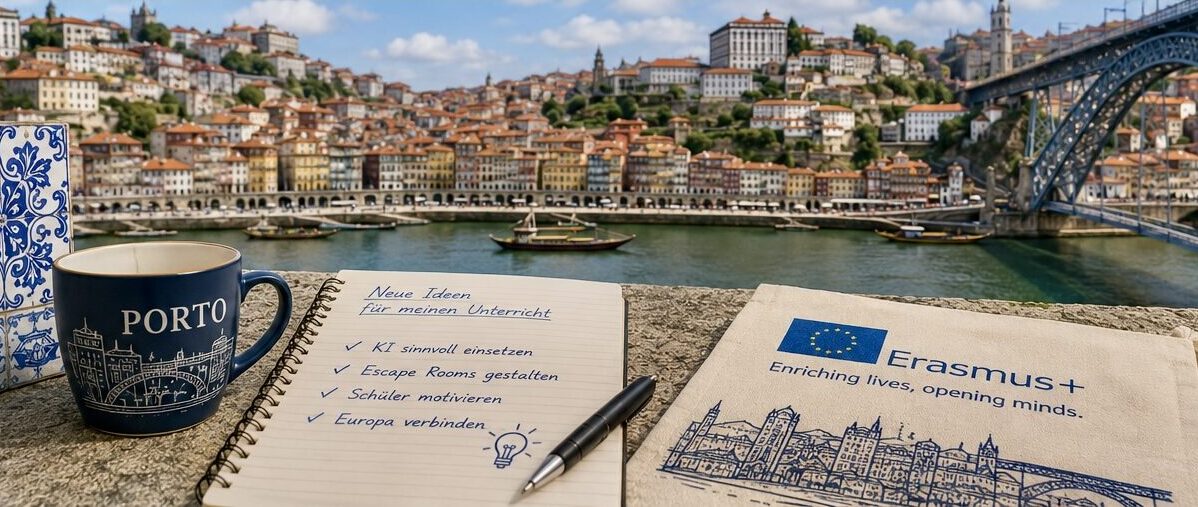 PORTO
Neue Ideen
für meinen Unterricht
✓ KI sinnvoll einsetzen
✓ Escape Rooms gestalten
✓ Schüler motivieren
✓ Europa verbinden
Erasmus+
Enriching lives, opening minds.